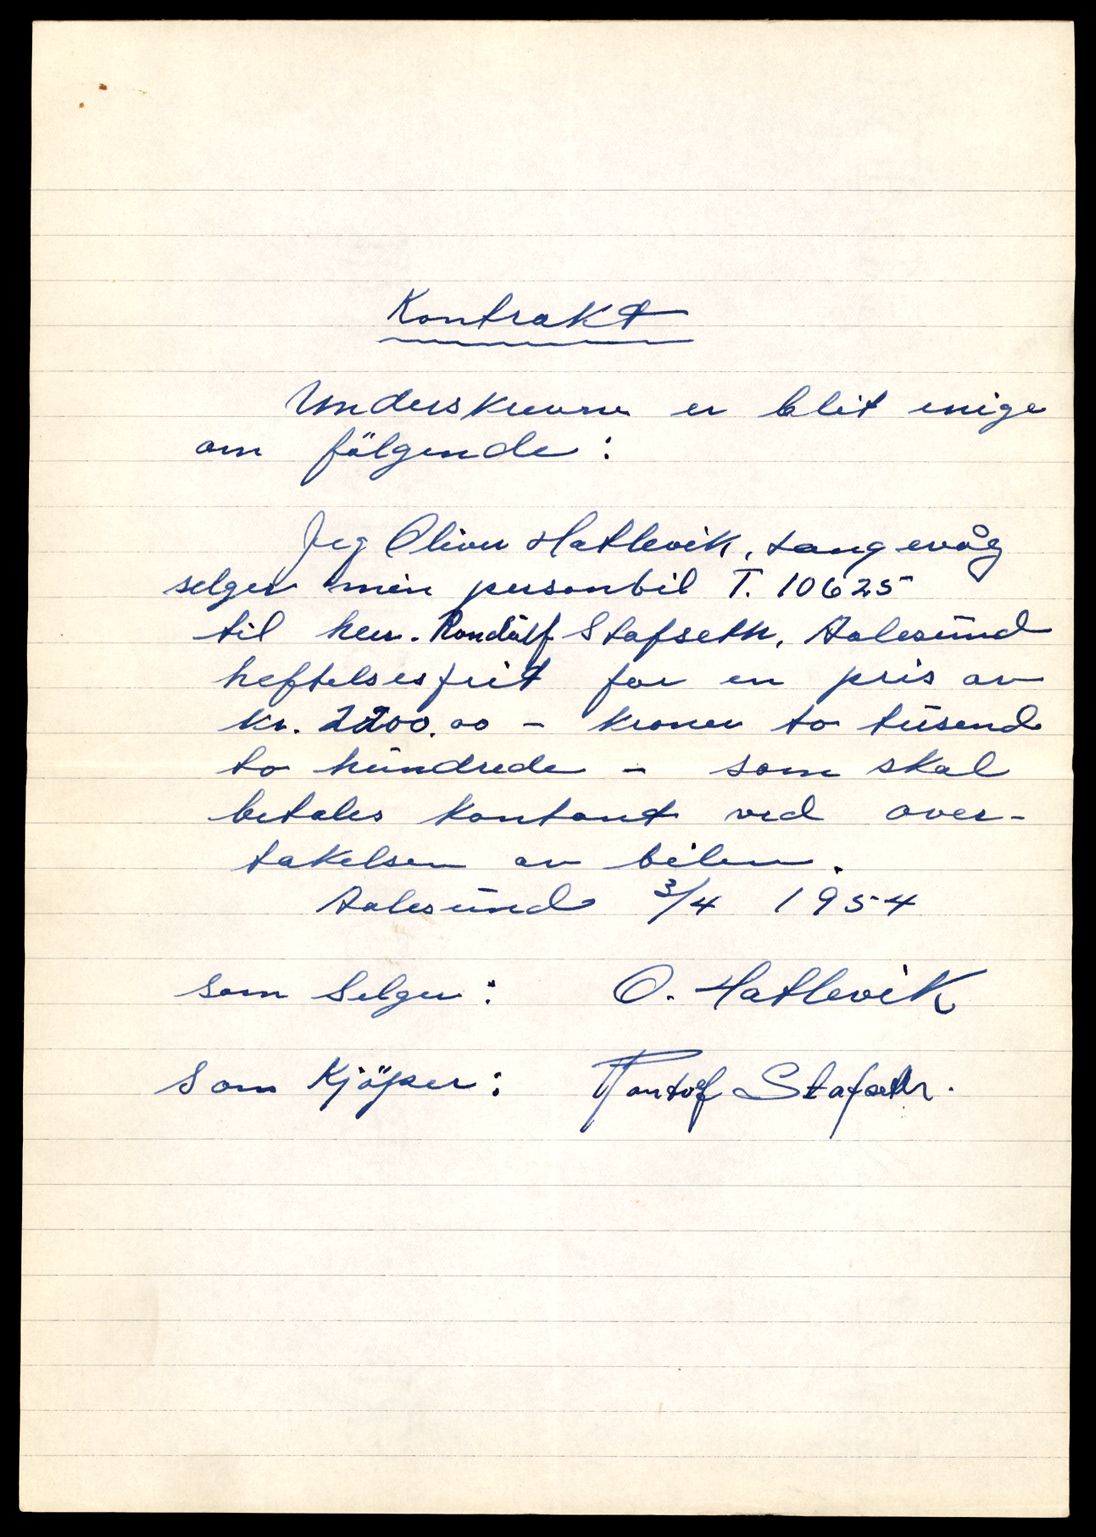 Kontrakt
Underskrevne er blit enige
om fölgende :
Jeg Oliver Hatlevik, Langevåg
selger min personbil T. 10625
til herr. Rondülf Stafseth, Aalesünd
heftelsesfrit for en pris av
kr. 2200.00 - kroner to tüsend
to hündrede - som skal
betales kontant ved over-
takelsen av bilen.
Aalesünd 3/4 1954
Som Selger : O. Hatlevik
Som Kjöper : Rontolf Stafseth.